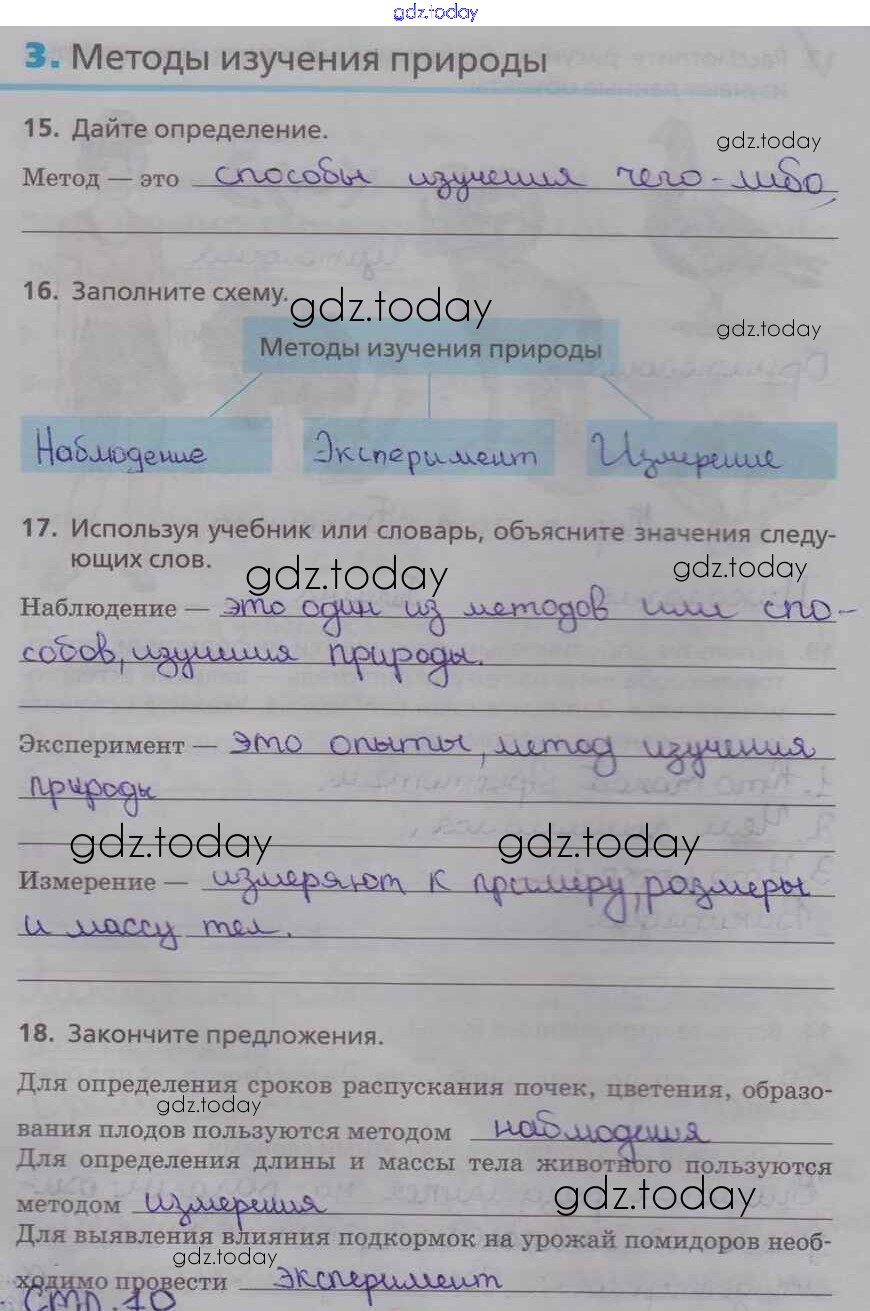 gdz.today
3. Методы изучения природы
15. Дайте определение.
gdz.today
Метод — это способы изучения чего-либо
16. Заполните схему.
gdz.today
gdz.today
Методы изучения природы
Наблюдение Эксперимент Измерение
17. Используя учебник или словарь, объясните значения следу-
ющих слов.
gdz.today
gdz.today
Наблюдение — это один из методов или спо-
собов, изучения природы.
Эксперимент — это опыты, метод изучения
природы
gdz.today
gdz.today
Измерение — измеряют к примеру, размеры
и массу тел.
18. Закончите предложения.
Для определения сроков распускания почек, цветения, образо-
gdz.today
вания плодов пользуются методом наблюдения
Для определения длины и массы тела животного пользуются
методом измерения
gdz.today
Для выявления влияния подкормок на урожай помидоров необ-
gdz.today
ходимо провести эксперимент
стр. 10